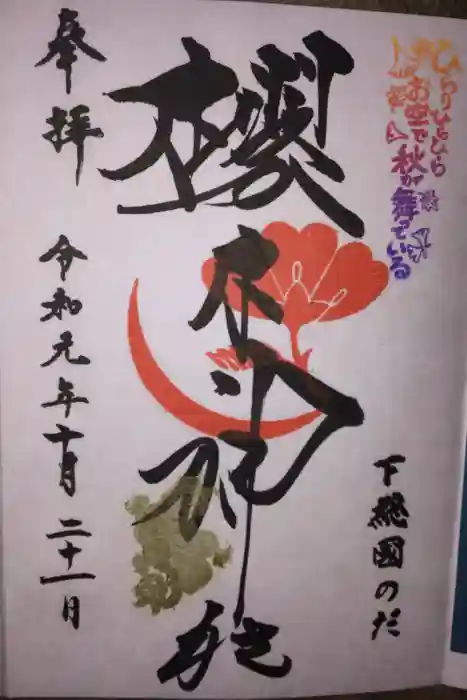 ひらりひらひら
お空で秋が舞っている
下総國のだ
櫻木神社
奉拝
令和元年十月二十一日